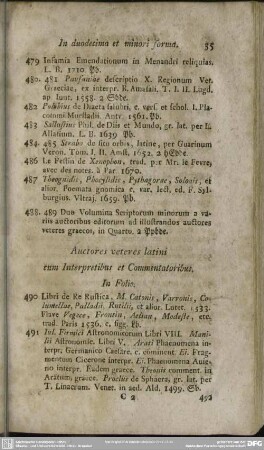 In duodecima et minori forma. 35
479 Infamia Emendationum in Menandri reliquias.
L. B. 1710. Pb.
480. 481 Pausaniae descriptio X. Regionum Vet.
Graeciae, ex interpr. R. Amasaei. T. I. II. Lugd.
ap. Iunt. 1558. 2 Sbde.
482 Polybius de Diaeta salubri, e vers. et schol. I. Pla-
cotomi Murstadii. Antr. 1561. Pb.
483 Sallustius Phil. de Diis et Mundo, gr. lat. per L.
Allatium. L. B. 1639 Pb.
484. 485 Strabo de situ orbis, latine, per Guarinum
Veron. Tom. I. II. Amst. 1652. 2 hSbde.
486 Le Festin de Xenophon, trad. par Mr. le Fevre,
avec des notes. à Par 1670.
487 Theognidis, Phocylidis, Pythagorae, Solonis, et
alior. Poemata gnomica c. var. lect. ed. F. Syl-
burgius. Vltraj. 1659. Pb.
488. 489 Duo Volumina Scriptorum minorum a va-
riis auctoribus editorum ad illustrandos auctores
veteres graecos, in Quarto. 2 Ppbde.
Auctores veteres latini
cum Interpretibus et Commentatoribus.
In Folio.
490 Libri de Re Rustica, M. Catonis, Varronis, Co-
lumellae, Palladii, Rutilii, et alior. Lutet. 1533.
Flave Vegece, Frontin, Aelian, Modeste, etc.
trad. Paris 1536. c. fig. Fb.
491 Iul. Firmici Astronomicorum Libri VIII. Mani-
lii Astronomic. Libri V. Arati Phaenomena in-
terpr. Germanico Caesare. c. comment. Ei. Frag-
mentum Cicerone interpr. Ei. Phaenomena Auie-
no interpr. Eadem graece. Theonis comment. in
Aratum, graece. Proclus de Sphaera, gr. lat. per
T. Linacrum. Vener. in aed. Ald. 1499. Sb
C 2 492